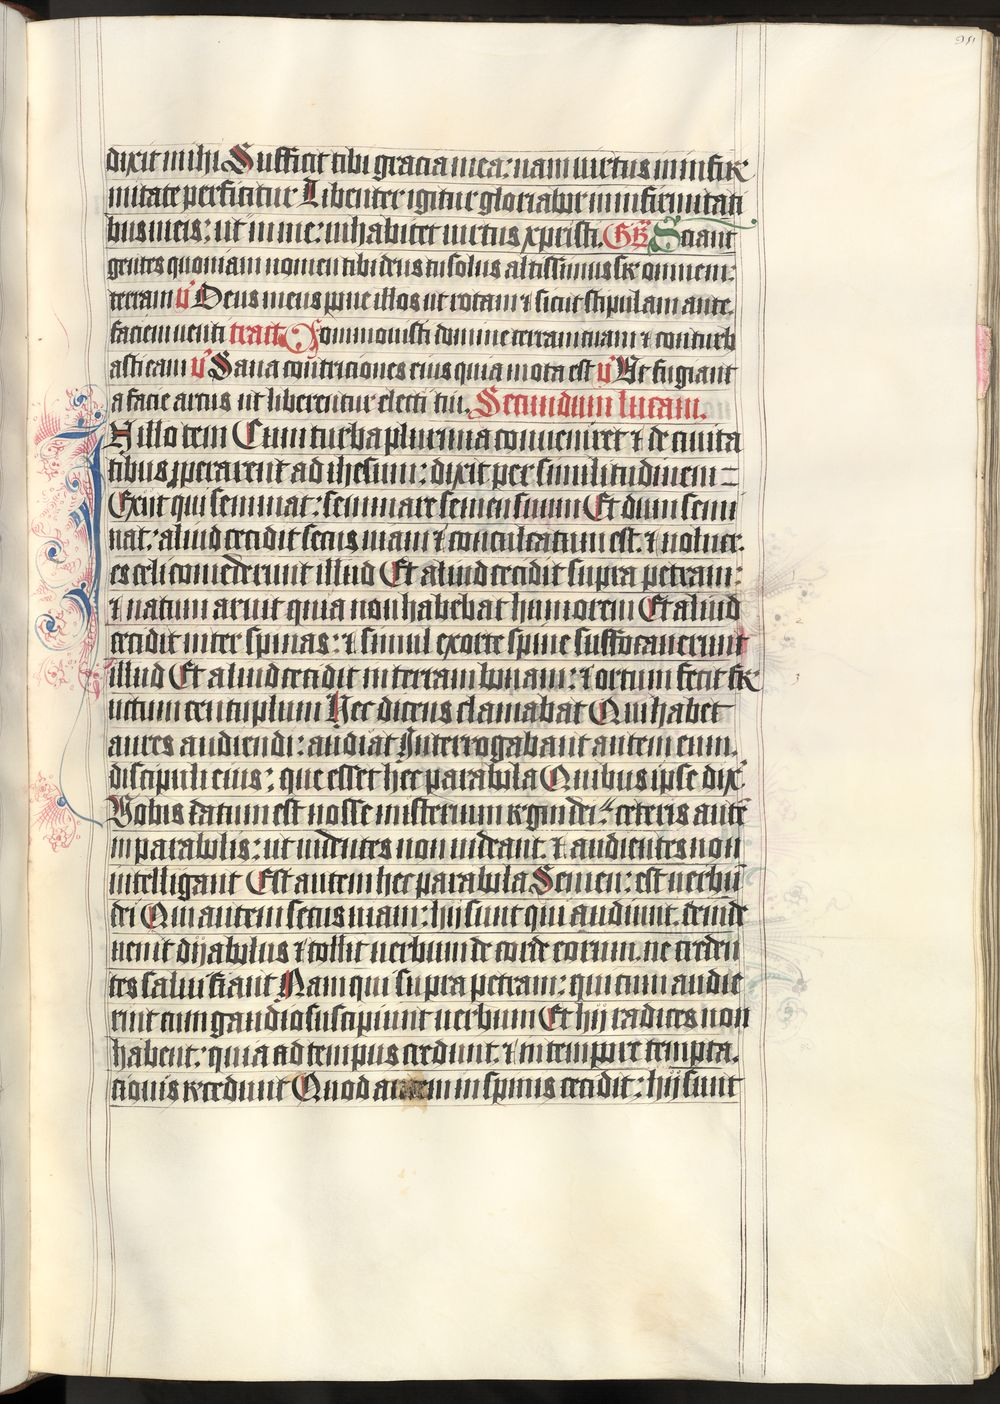 dixit mihi Sufficit tibi gracia mea: nam uirtus in infir
mitate perficitur Libenter igitur gloriabor in infirmitati
bus meis: ut in me: inhabitet uirtus xpristi. Gr̃ Sciant
gentes quoniam nomen tibi deus tu solus altissimus sr̃ omnem:
terram v̕ Deus meus pone illos ut rotam ⁊ sicut stipulam ante.
faciem uenti tract Commouisti domine terram tuam ⁊ conturb
asti eam v̕ Sana contriciones eius quia mota est v̕ Ut fugiant
a facie arcus ut liberentur electi tui. Secundum lucam.
In illo tem Cum turba plurima conueniret ⁊ de ciuita
tibus pperarent ad ihesum: dixit per similitudinem
Exiit qui seminat: seminare semen suum Et dum semi
nat: aliud cecidit secus uiam ⁊ conculcatum est. ⁊ uolucr
es celi comederunt illud Et aliud cecidit supra petram:
⁊ natum aruit quia non habebat humorem Et aliud
cecidit inter spinas: ⁊ simul exorte spine suffocauerunt
illud Et aliud cecidit in terram bonam: ⁊ ortum fecit fr
uctum centuplum Hec dicens clamabat Qui habet
aures audiendi: audiat Interrogabant autem eum.
discipuli eius: que esset hec parabola Quibus ipse dix̕
Vobis datum est nosse misterium regni dei: ceteris autē
in parabolis: ut uidentes non uideant. ⁊ audientes non
intelligant Est autem hec parabola Semen: est uerbū
dei Qui autem secus uiam: hij sunt qui audiunt. deinde
uenit dyabolus ⁊ tollit uerbum de corde eorum. ne creden
tes salui fiant Nam qui supra petram: qui cum audie
rint cum gaudio suscipiunt uerbum Et hij radices non
habent: quia ad tempus credunt. ⁊ in tempore tempta.
cionis recedunt Quod autem in spinis cecidit: hij sunt